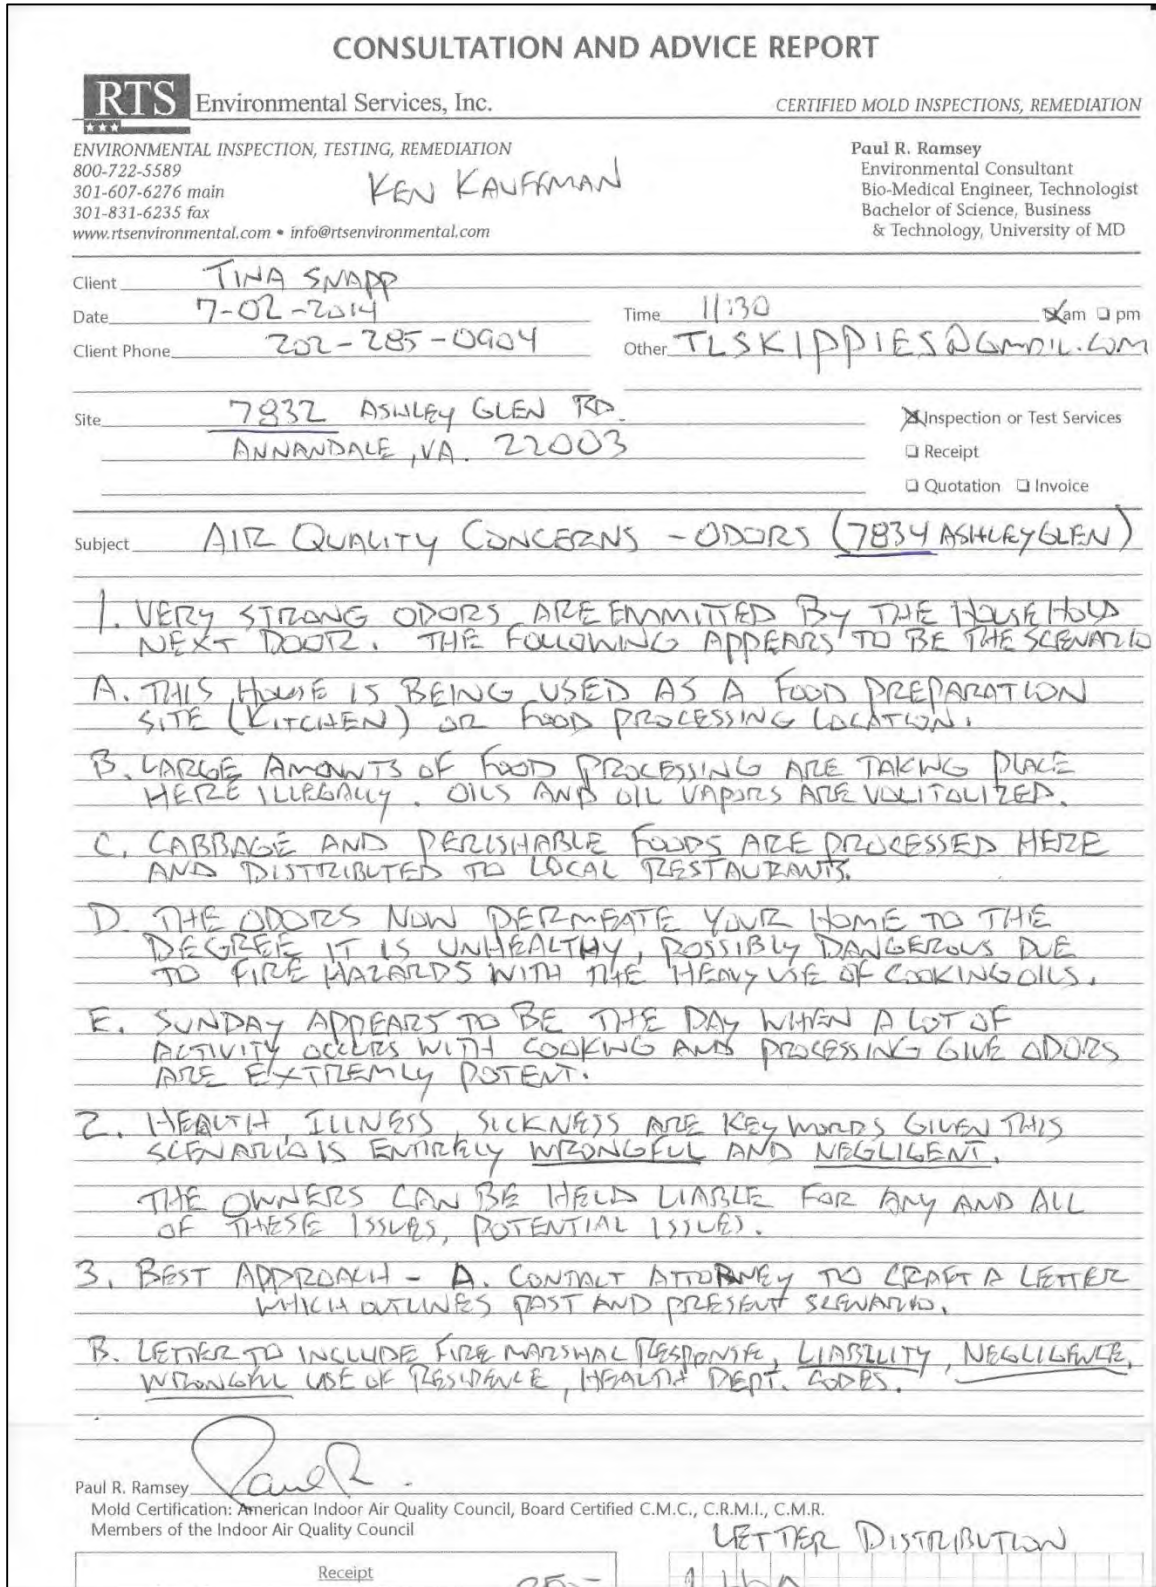 CONSULTATION AND ADVICE REPORT
RTS Environmental Services, Inc.
CERTIFIED MOLD INSPECTIONS, REMEDIATION
ENVIRONMENTAL INSPECTION, TESTING, REMEDIATION
800-722-5589
301-607-6276 main
301-831-6235 fax
www.rtsenvironmental.com • info@rtsenvironmental.com
KEN KAUFFMAN
Paul R. Ramsey
Environmental Consultant
Bio-Medical Engineer, Technologist
Bachelor of Science, Business
& Technology, University of MD
Client TINA SNAPP
Date 7-02-2014
Time 11:30 ☒am ☐ pm
Client Phone 202-285-0904
Other TLSKIPPIES@GMAIL.COM
Site 7832 ASHLEY GLEN RD.
ANNANDALE, VA. 22003
☒Inspection or Test Services
☐ Receipt
☐ Quotation ☐ Invoice
Subject AIR QUALITY CONCERNS - ODORS (7834 ASHLEY GLEN)
1. VERY STRONG ODORS ARE EMMITTED BY THE HOUSEHOLD
NEXT DOOR. THE FOLLOWING APPEARS TO BE THE SCENARIO
A. THIS HOUSE IS BEING USED AS A FOOD PREPARATION
SITE (KITCHEN) OR FOOD PROCESSING LOCATION.
B. LARGE AMOUNTS OF FOOD PROCESSING ARE TAKING PLACE
HERE ILLEGALLY. OILS AND OIL VAPORS ARE VOLITOLIZED.
C. CABBAGE AND PERISHABLE FOODS ARE PROCESSED HERE
AND DISTRIBUTED TO LOCAL RESTAURANTS.
D. THE ODORS NOW PERMEATE YOUR HOME TO THE
DEGREE IT IS UNHEALTHY, POSSIBLY DANGEROUS DUE
TO FIRE HAZARDS WITH THE HEAVY USE OF COOKING OILS.
E. SUNDAY APPEARS TO BE THE DAY WHEN A LOT OF
ACTIVITY OCCURS WITH COOKING AND PROCESSING GIVE ODORS
ARE EXTREMLY POTENT.
2. HEALTH, ILLNESS, SICKNESS ARE KEY WORDS GIVEN THIS
SCENARIO IS ENTIRELY WRONGFUL AND NEGLIGENT.
THE OWNERS CAN BE HELD LIABLE FOR ANY AND ALL
OF THESE ISSUES, POTENTIAL ISSUES.
3. BEST APPROACH - A. CONTACT ATTORNEY TO CRAFT A LETTER
WHICH OUTLINES PAST AND PRESENT SCENARIO.
B. LETTER TO INCLUDE FIRE MARSHAL RESPONSE, LIABILITY, NEGLIGENCE,
WRONGFUL USE OF RESIDENCE, HEALTH DEPT. CODES.
Paul R. Ramsey Paul R.
Mold Certification: American Indoor Air Quality Council, Board Certified C.M.C., C.R.M.I., C.M.R.
Members of the Indoor Air Quality Council
LETTER DISTRIBUTION
Receipt